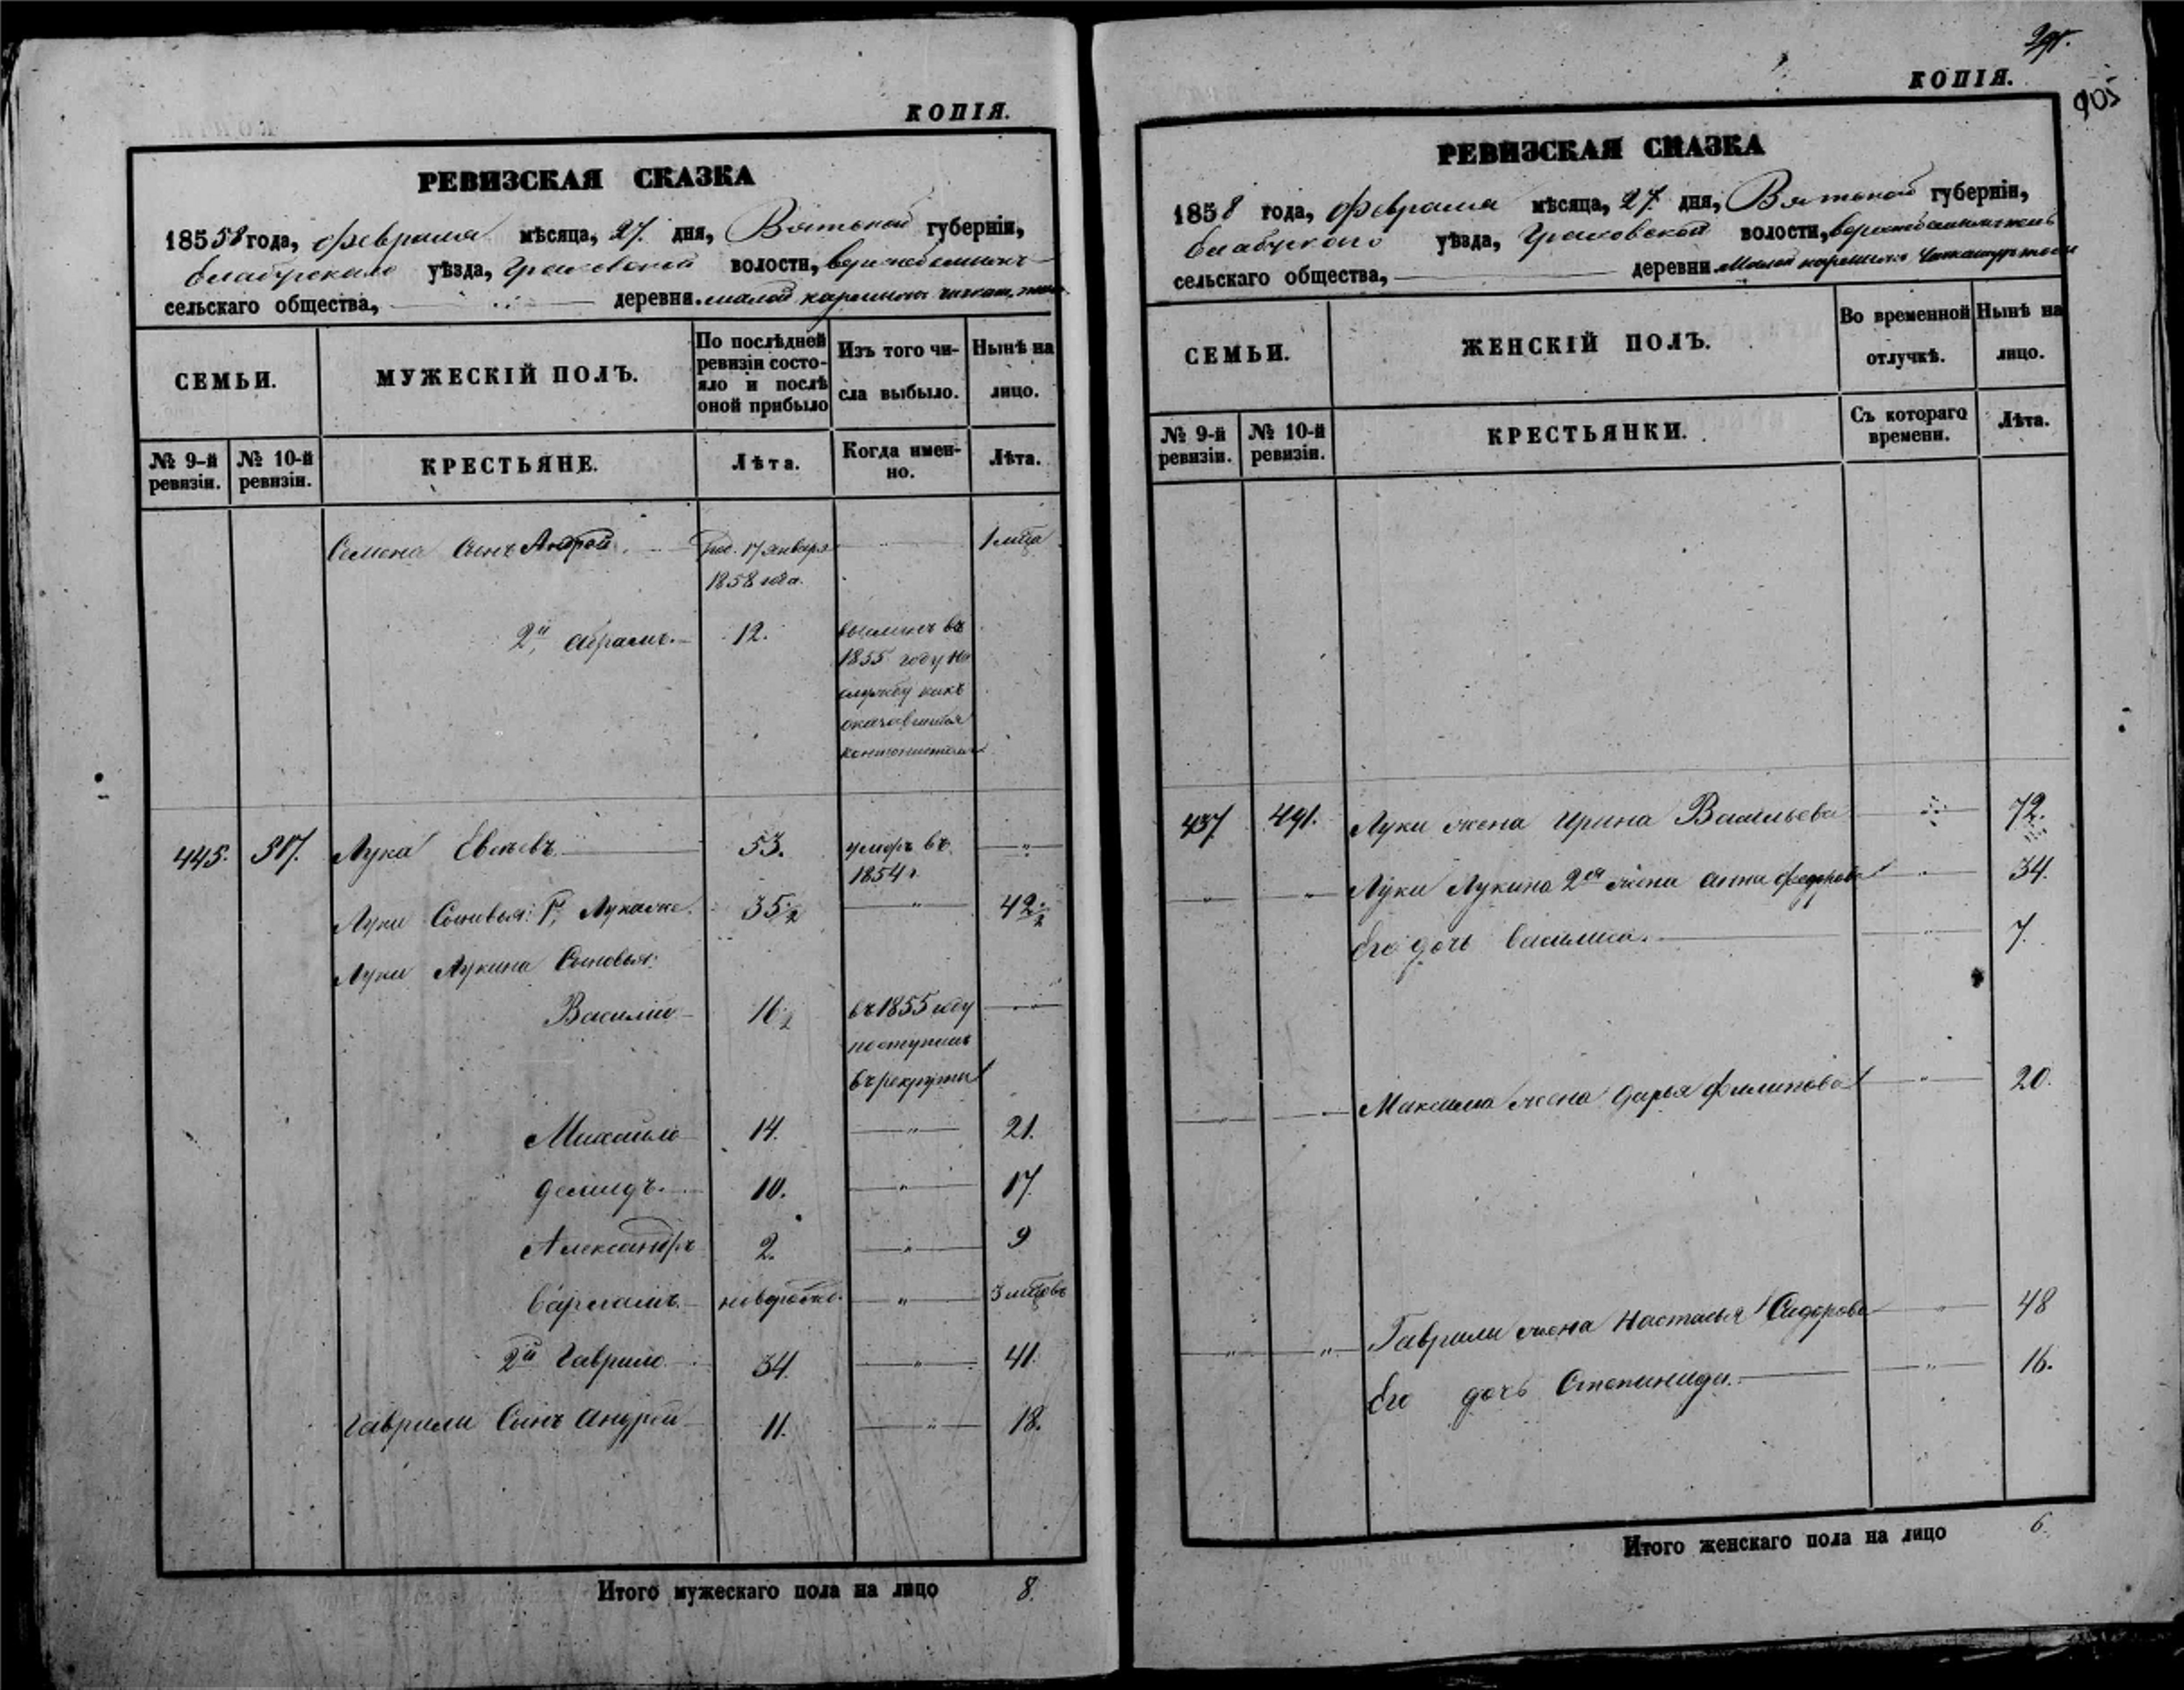 КОПІЯ.
РЕВИЗСКАЯ СКАЗКА
185 58 года, февраля мѣсяца, 27. дня, Вятской губерніи,
Елабужскаго уѣзда, волости,
сельскаго общества, деревни малой
СЕМЬИ.
МУЖЕСКІЙ ПОЛЪ.
По послѣдней ревизіи состо-
яло и послѣ
оной прибыло
Изъ того чи-
сла выбыло.
Нынѣ на
лицо.
№ 9-й
ревизіи.
№ 10-й
ревизіи.
КРЕСТЬЯНЕ.
Лѣта.
Когда имен-
но.
Лѣта.
Семена Сынъ Андрей. род. 17 января 1 мца
1858 года.
2й, Абрамъ. 12. въ
1855 году на
службу какъ
оказавшійся
кантонистомъ
445. 317. Лука 53. умеръ въ
1854 г.
Луки Сыновья: 1й, Лука 35 1/2 " 42 1/2
Луки Лукина Сыновья:
Василій 16 1/2 въ 1855 году
поступилъ
въ рекруты
Михайло 14. " 21.
Демидъ. 10. " 17.
Александръ 2. " 9
Варламъ. новорожд. " 3 мцовъ
2й Гаврило 34. " 41.
Гаврилы Сынъ Андрей 11. " 18.
Итого мужескаго пола на лицо 8.
КОПІЯ.
905
РЕВИЗСКАЯ СКАЗКА
1858 года, февраля мѣсяца, 27. дня, Вятской губерніи,
Елабужскаго уѣзда, волости,
сельскаго общества, деревни Малой
СЕМЬИ.
ЖЕНСКІЙ ПОЛЪ.
Во временной
отлучкѣ.
Нынѣ на
лицо.
№ 9-й
ревизіи.
№ 10-й
ревизіи.
КРЕСТЬЯНКИ.
Съ котораго
времени.
Лѣта.
437. 491. Луки жена Ирина Васильева 72.
" " Луки Лукина 2ая жена Анна Федорова " 34.
Его дочь Василиса. " 7.
Максима жена Дарья Филипова " 20.
" " Гаврилы жена Настасья Сидорова " 48
Его дочь Степанида. " 16.
Итого женскаго пола на лицо 6.